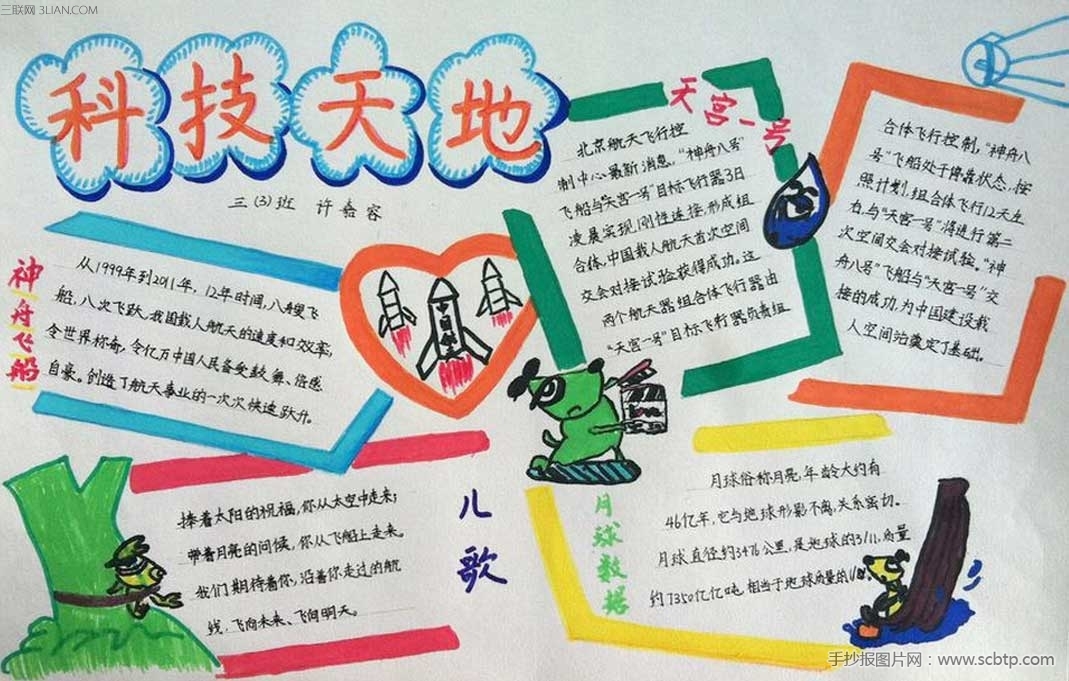 三联网 3LIAN.COM
科技天地
三(3)班 许嘉容
神舟飞船
从1999年到2011年,12年时间,八艘飞
船,八次飞跃,我国载人航天的速度和效率,
令世界称奇,令亿万中国人民备受鼓舞、倍感
自豪。创造了航天事业的一次次快速跃升。
天宫一号
北京航天飞行控
制中心最新消息,“神舟八号”
飞船与“天宫一号”目标飞行器3日
凌晨实现刚性连接,形成组
合体,中国载人航天首次空间
交会对接试验获得成功。这
两个航天器组合体飞行器由
“天宫一号”目标飞行器负责组
合体飞行控制,“神舟八
号”飞船处于停靠状态,按
照计划,组合体飞行12天左
右,与“天宫一号”将进行第二
次空间交会对接试验。“神
舟八号”飞船与“天宫一号”交
接的成功,为中国建设载
人空间站奠定了基础。
儿歌
捧着太阳的祝福,你从太空中走来;
带着月亮的问候,你从飞船上走来。
我们期待着你,沿着你走过的航
线,飞向未来、飞向明天。
月球数据
月球俗称月亮,年龄大约有
46亿年,它与地球形影不离,关系密切。
月球直径约3476公里,是地球的3/11,质量
约7350亿亿吨,相当于地球质量的1/8
手抄报图片网:www.scbtp.com